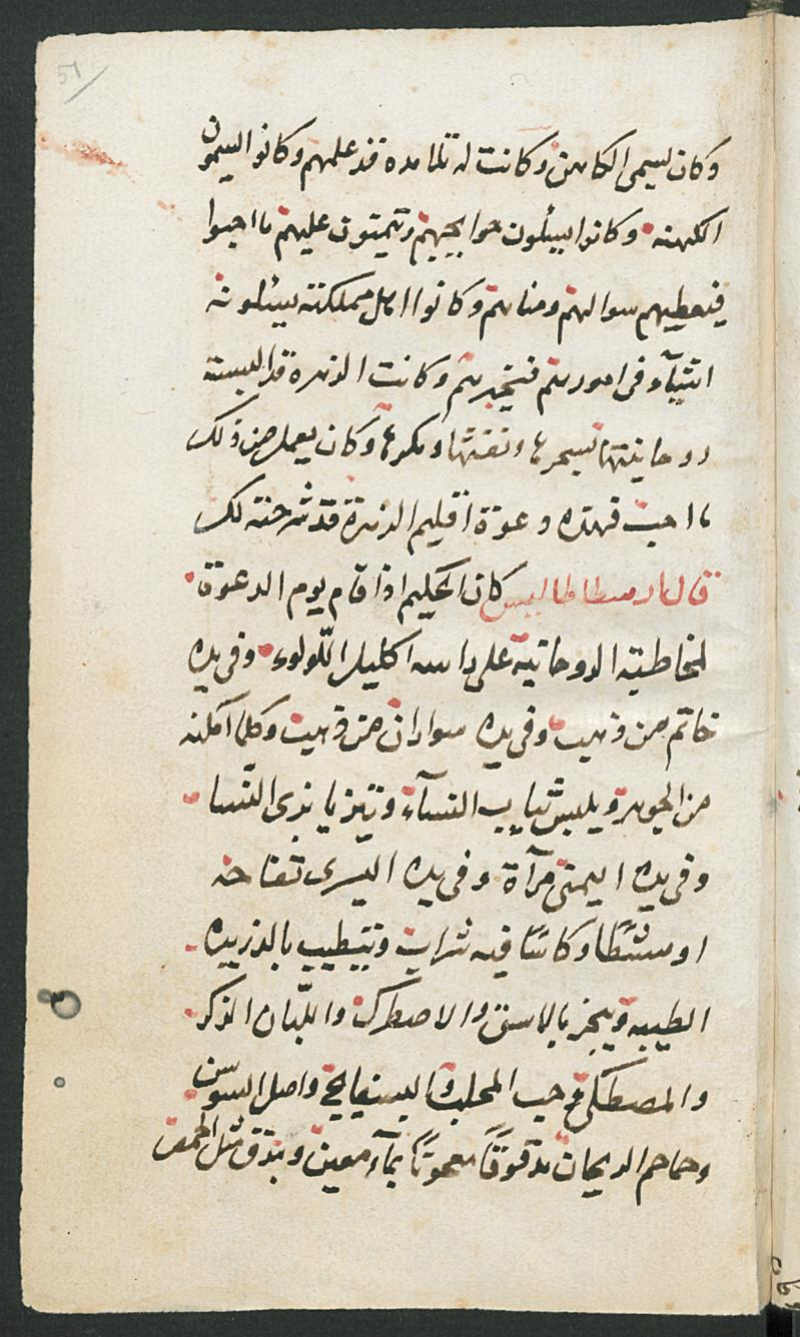 51
وكان يسمى الكاهن وكانت له تلامده قد علمهم وكانوا يسمون
الكهنه وكانوا يسئلون حوايجهم وتيمنون عليهم ما احبوا
فيعطيهم سوالهم ومناهم وكانوا اهل مملكته يسئلونه
اشيآء فى امورهم فيخبرهم وكانت الزهرة قد البسته
روحانيتها بسحرها ونفثها ومكرها وكان يعمل من ذلك
ما احب فهذه دعوة اقليم الزهرة قد شرحته لك
قال ارسطاطاليس كان الحكيم اذا قام يوم الدعوة
لمخاطبته الروحانيه على راسه اكليل اللّولوء وفى يده
خاتم من ذهب وفى يده سواران من ذهب وكلما امكنه
من الجوهر ويلبس ثياب النسآء ويتزيا بزى النسا
وفى يده اليمنى مرآة وفى يده اليسرى تفاحه
او مشطًا وكاسًا فيه شراب ويتطيب بالذريره
الطيبه ويبخر بالاسن والاصطرك واللّبان الذكر
والمصطكى وحب المحلب والبسفايج واصل السوسن
وحماحم الريحان مدقوقًا معجونًا بمآء معين وبندق مثل الحمص